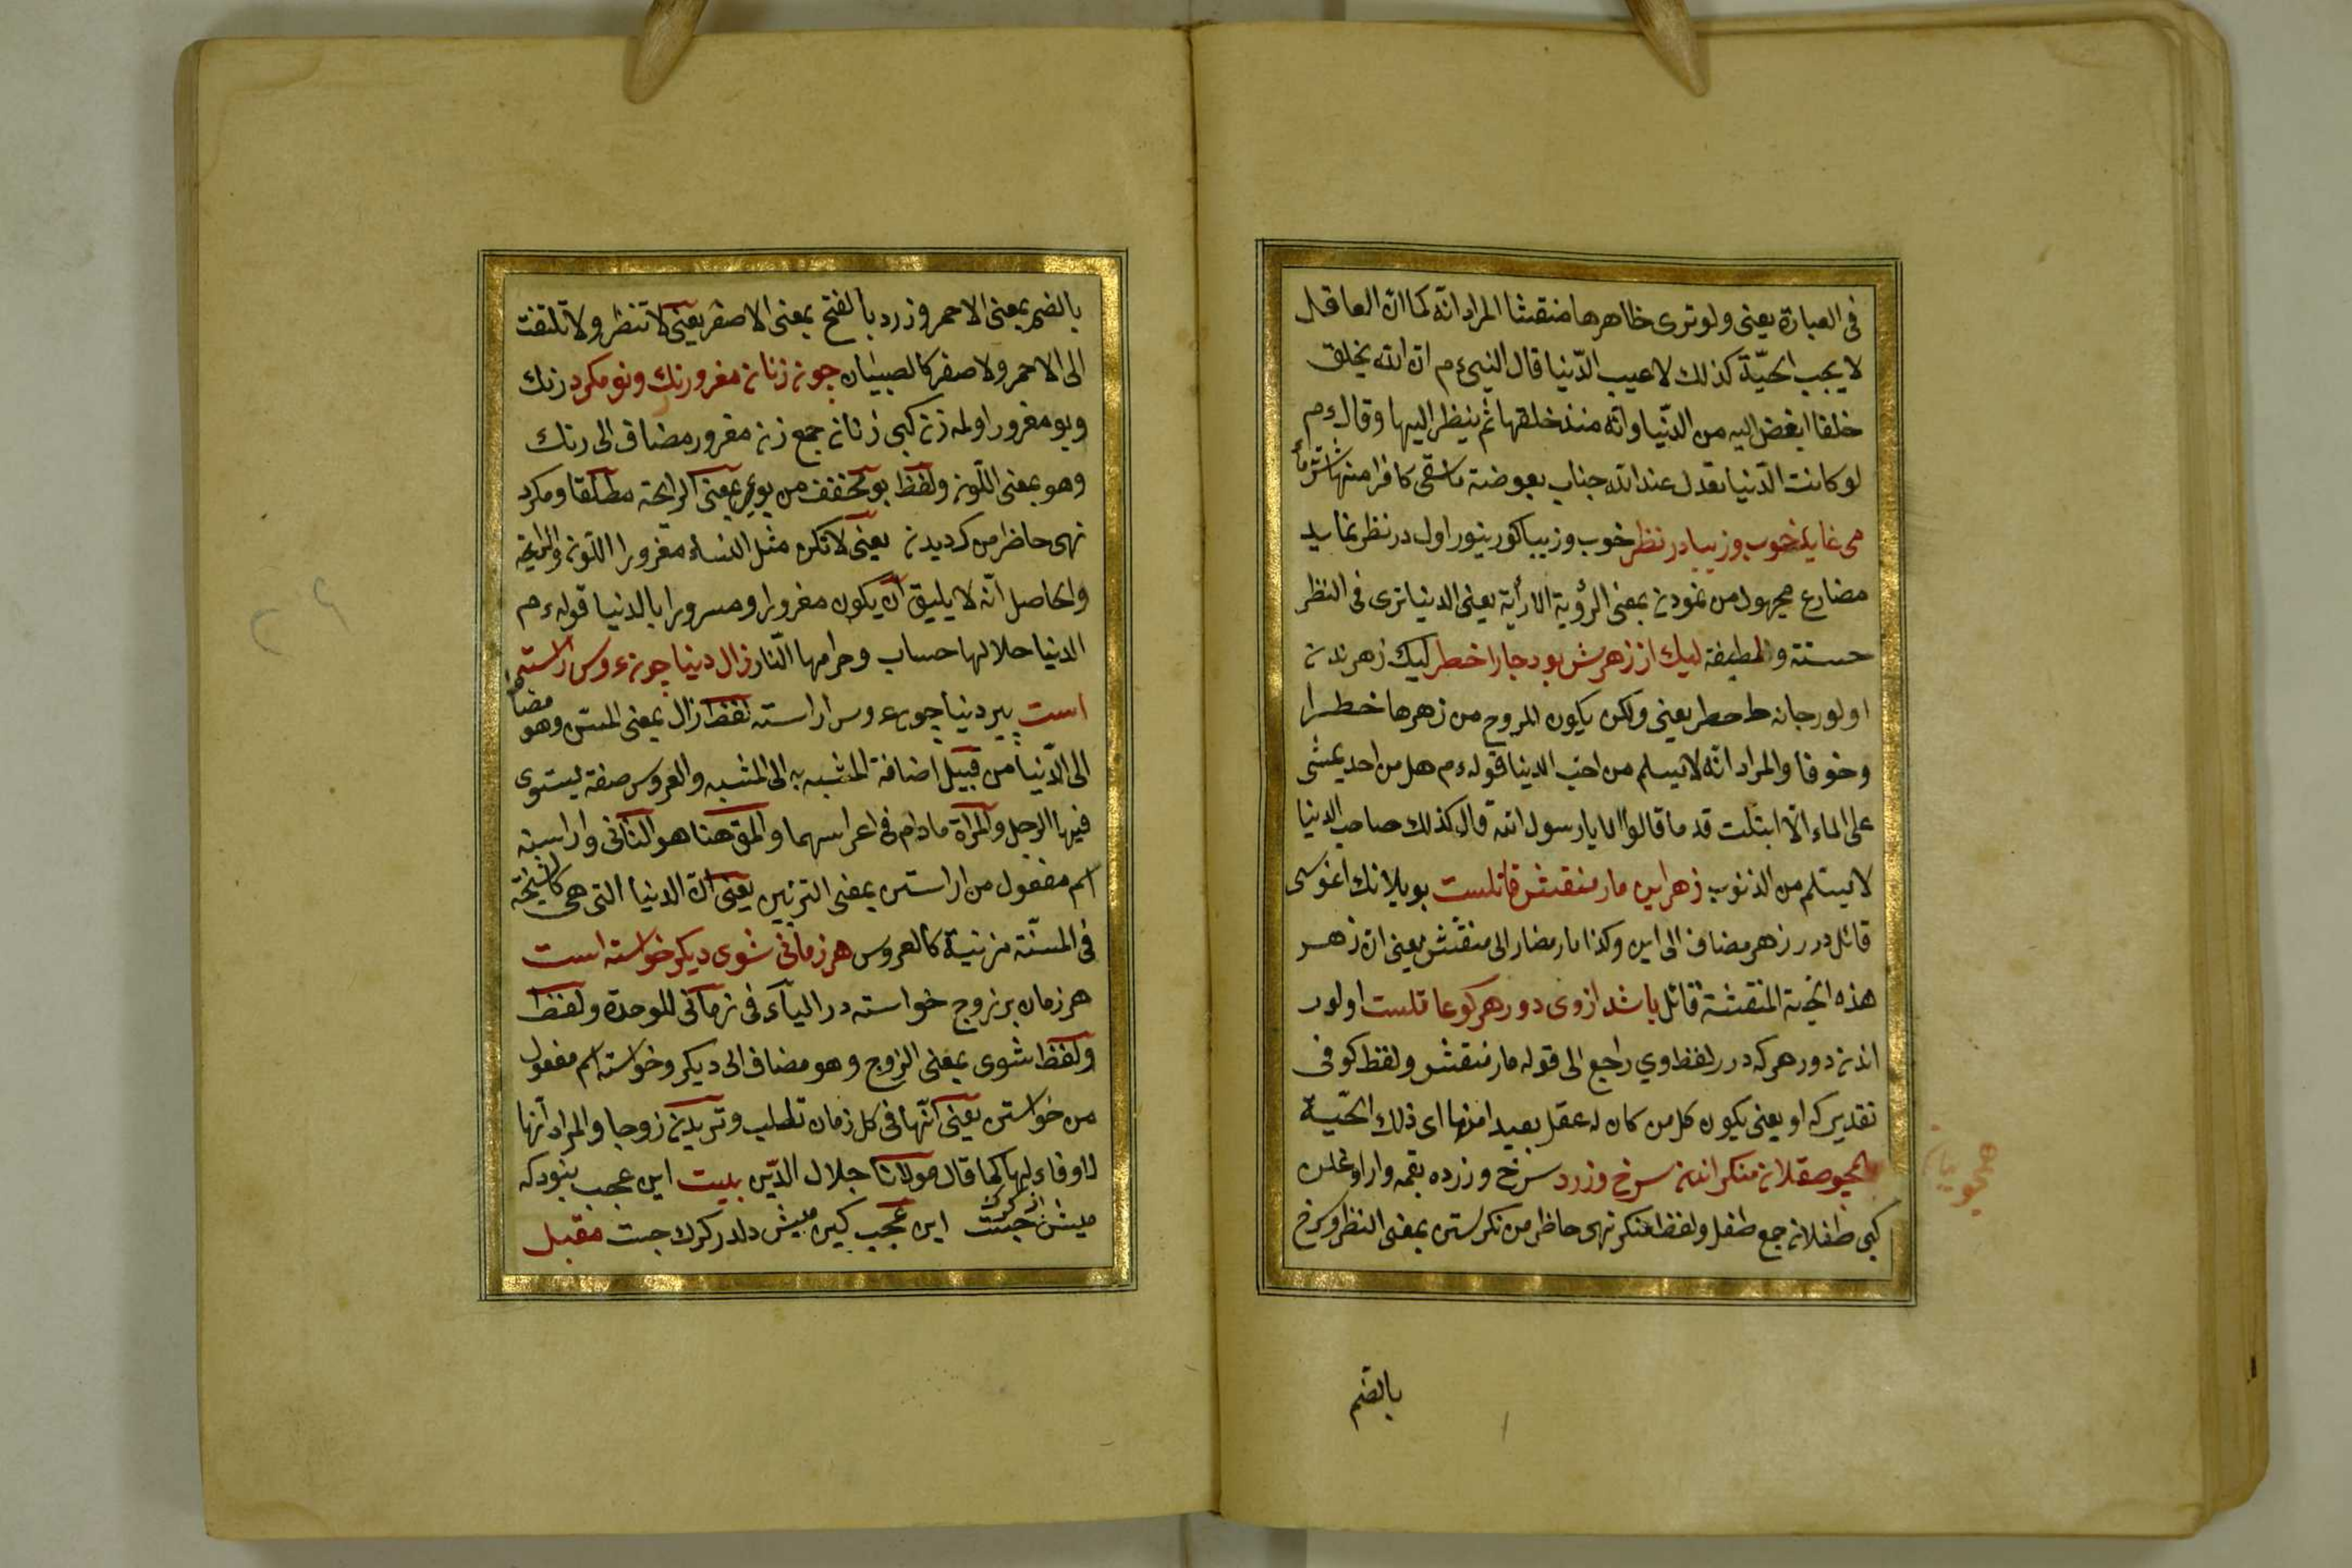 فى العبارة يعنى ولو ترى ظاهرها منقشا المراد انّه كما انّ العاقل
لا يحب الحيّة كذلك لا عيب الدّنيا قال النبىءم ان الله يخلق
خلقا ابغض اليه من الدّنيا وانّه منذ خلقها ثم ينظر اليها وقالءم
لو كانت الدّنيا تعدل عند الله جناب بعوضة ما سقى كافرا منها شربة
مى نمايد خوب وزيبا در نظر خوب وزيبا كورينور اول در نظر نمايد
مضارع مجهول من نمودن بمعنى الرؤية الارأية يعنى الدنيا ترى فى النظر
حسنة ولطيفة ليك از زهرش بود جانرا خطر ليك زهرندن
اولور جانه خطر يعنى ولكن يكون الروح من زهرها خطرا
وخوفا والمراد انّه لا يسلم من احبّ الدنيا قولهءم هل من احد يمشى
على الماء الّا ابتلت قدما قالوا لا يا رسول الله قال كذلك صاحب الدنيا
لا يسلم من الذنوب زهر اين مار منقش قاتلست بو يلانك اغوسى
قاتلدرر زهر مضاف الى اين وكذا مار مضاف الى منقش يعنى ان زهر
هذه الحية المنقشة قاتل باشد ازوى دور هركو عاقلست اولور
اندن دور هركه درر لفظ وي راجع الى قوله مار منقش ولفظ كو فى
تقدير كه او يعنى يكون كل من كان له عقل بعيدا منها اى ذلك الحيّة
همجو طفلان منكر اندر سرخ وزرد سرخ وزرده بقمه وار اوغلن
كبى طفلان جمع طفل ولفظ منكر نهى حاظر من نكرستن بمعنى النظر وسرخ
بالضم
بالضم بمعنى الاحمر وزرد بالفتح بمعنى الاصفر يعنى لا تنظر ولا تلتفت
الى الاحمر ولا صفر كالصبيان جون زنان مغرور رنك وبو مكرد رنك
وبو مغرور اولمه زن كبى زنان جمع زن مغرور مضاف الى رنك
وهو بمعنى اللون ولفظ بو مخفف من بوى بمعنى الرايحة مطلقا ومكرد
نهى حاظر من كرديدن يعنى لا تكن مثل النساء مغرورا اللون والرايحة
والحاصل انّه لا يليق ان يكون مغرورا ومسرورا بالدنيا قولهءم
الدنيا حلالها حساب وحرامها النّار زال دنيا جون عروس اراسته
است پير دنيا جون عروس اراسته لفظ زال بمعنى المسن وهو مضاف
الى الدّنيا من قبيل اضافة المشبه به الى المشبه والعروس صفة يستوى
فيها الرجل والمرأة مادام فى اعراسهما والمق هنا هو الثانى واراسته
اسم مفعول من اراستن بمعنى التزيين يعنى انّ الدنيا التى هى كالشيخة
فى المسنّة مزينة كالعروس هر زمانى شوى ديكر خواسته است
هر زمان بر زوج خواسته در الياء فى زمانى للوحدة ولفظ
ولفظ شوى بمعنى الزوج وهو مضاف الى ديكر وخواسته اسم مفعول
من خواستن يعنى انّها فى كل زمان تطلب وتريدن زوجا والمراد انها
لا وفاء لها كما قال مولانا جلال الدّين بيت اين عجب نبود كه
ميش از كرك جست اين عجب كين ميش دلدر كرك جست مقبل